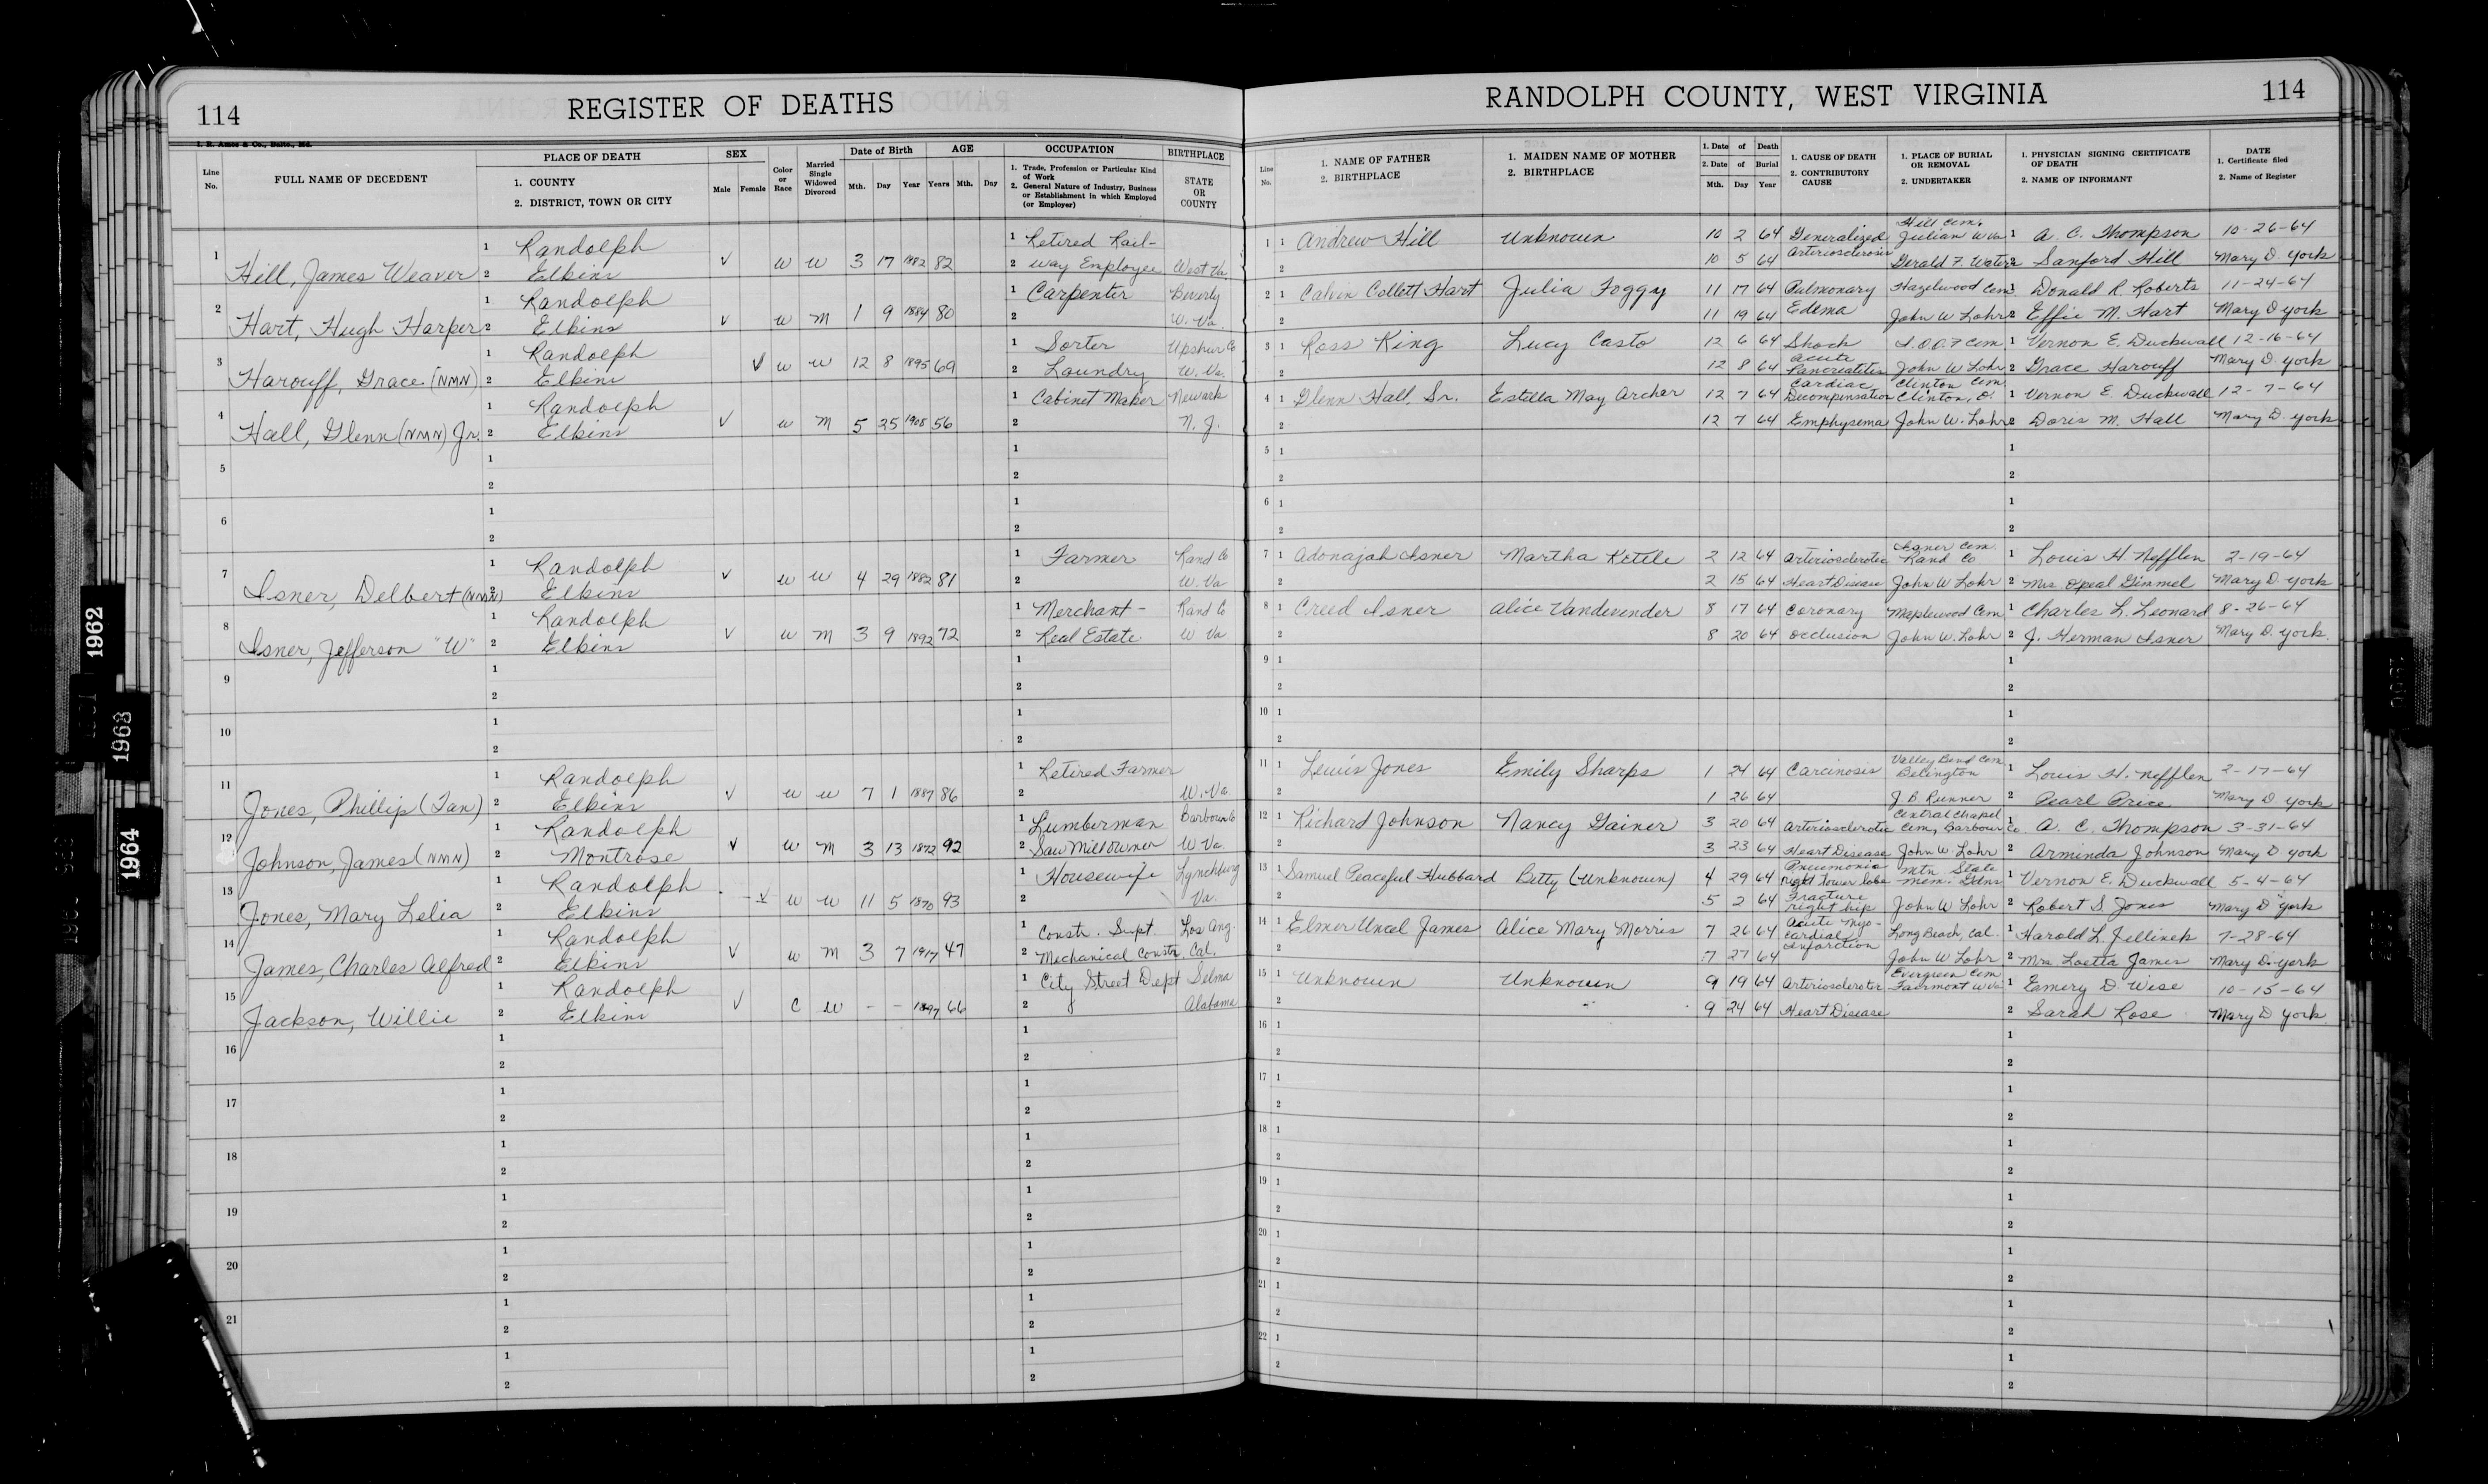 114
REGISTER OF DEATHS
RANDOLPH COUNTY, WEST VIRGINIA
114
I. R. Amos & Co., Balto., Md.
Line No.
FULL NAME OF DECEDENT
PLACE OF DEATH
1. COUNTY
2. DISTRICT, TOWN OR CITY
SEX
Male Female
Color or Race
Married Single Widowed Divorced
Date of Birth
Mth. Day Year
AGE
Years Mth. Day
OCCUPATION
1. Trade, Profession or Particular Kind of Work
2. General Nature of Industry, Business or Establishment in which Employed (or Employer)
BIRTHPLACE
STATE OR COUNTY
Line No.
1. NAME OF FATHER
2. BIRTHPLACE
1. MAIDEN NAME OF MOTHER
2. BIRTHPLACE
1. Date of Death
2. Date of Burial
Mth. Day Year
1. CAUSE OF DEATH
2. CONTRIBUTORY CAUSE
1. PLACE OF BURIAL OR REMOVAL
2. UNDERTAKER
1. PHYSICIAN SIGNING CERTIFICATE OF DEATH
2. NAME OF INFORMANT
DATE
1. Certificate filed
2. Name of Register
1 1 Randolph 1 Retired Rail- 1 1 Andrew Hill Unknown 10 2 64 Generalized Hill Cem. Julian W Va 1 A. C. Thompson 10-26-64
Hill, James Weaver 2 Elkins V W W 3 17 1882 82 2 way Employee West Va 2 10 5 64 Arteriosclerosis Gerald F. Waters 2 Sanford Hill Mary D. York
2 1 Randolph 1 Carpenter Beverly 2 1 Calvin Collett Hart Julia Foggy 11 17 64 Pulmonary Hazelwood Cem. 1 Donald R. Roberts 11-24-64
Hart, Hugh Harper 2 Elkins V W M 1 9 1884 80 2 W. Va. 2 11 19 64 Edema John W Lohr 2 Effie M. Hart Mary D York
3 1 Randolph 1 Sorter Upshur Co 3 1 Ross King Lucy Casto 12 6 64 Shock I.O.O.F Cem 1 Vernon E. Duckwall 12-16-64
Harouff, Grace (NMN) 2 Elkins V W W 12 8 1895 69 2 Laundry W. Va. 2 12 8 64 Acute Pancreatitis John W Lohr 2 Grace Harouff Mary D. York
4 1 Randolph 1 Cabinet Maker Newark 4 1 Glenn Hall, Sr. Estella May Archer 12 7 64 Cardiac Decompensation Clinton Cem Clinton, O. 1 Vernon E. Duckwall 12-7-64
Hall, Glenn (NMN) Jr. 2 Elkins V W M 5 25 1908 56 2 N. J. 2 12 7 64 Emphysema John W. Lohr 2 Doris M. Hall Mary D. York
5 1 1 5 1 1
2 2 2 2
6 1 1 6 1 1
2 2 2 2
7 1 Randolph 1 Farmer Rand Co 7 1 Adonajah Isner Martha Kettle 2 12 64 Arteriosclerotic Isner Cem. Rand Co 1 Louis H. Nefflen 2-19-64
Isner, Delbert (NMN) 2 Elkins V W W 4 29 1882 81 2 W. Va 2 2 15 64 Heart Disease John W Lohr 2 Mrs Opeal Gimmel Mary D. York
8 1 Randolph 1 Merchant - Rand Co 8 1 Creed Isner Alice Vandevender 8 17 64 Coronary Maplewood Cem 1 Charles L. Leonard 8-26-64
Isner, Jefferson "W" 2 Elkins V W M 3 9 1892 72 2 Real Estate W Va 2 8 20 64 Occlusion John W. Lohr 2 J. Herman Isner Mary D. York.
9 1 1 9 1 1
2 2 2 2
10 1 1 10 1 1
2 2 2 2
11 1 Randolph 1 Retired Farmer 11 1 Lewis Jones Emily Sharps 1 24 64 Carcinosis Valley Bend Cem Belington 1 Louis H. Nefflen 2-17-64
Jones, Phillip (Tan) 2 Elkins V W W 7 1 1887 86 2 W. Va. 2 1 26 64 J B. Runner 2 Pearl Price Mary D York
12 1 Randolph 1 Lumberman Barbour Co 12 1 Richard Johnson Nancy Gainer 3 20 64 Arteriosclerotic Central Chapel Cem, Barbour Co. 1 A. C. Thompson 3-31-64
Johnson, James (NMN) 2 Montrose V W M 3 13 1872 92 2 Saw Mill Owner W Va. 2 3 23 64 Heart Disease John W. Lohr 2 Arminda Johnson Mary D York
13 1 Randolph 1 Housewife Lynchburg 13 1 Samuel Peaceful Hubbard Betty (Unknown) 4 29 64 Pneumonia right lower lobe Mtn. State Mem. Gdns 1 Vernon E. Duckwall 5-4-64
Jones, Mary Lelia 2 Elkins V W W 11 5 1870 93 2 Va. 2 5 2 64 Fracture right hip John W Lohr 2 Robert S Jones Mary D York
14 1 Randolph 1 Constr. Supt Los Ang. 14 1 Elmer Uncel James Alice Mary Morris 7 26 64 Acute Myo- cardial Long Beach, Cal. 1 Harold L. Jellinek 7-28-64
James, Charles Alfred 2 Elkins V W M 3 7 1917 47 2 Mechanical Constr. Cal. 2 7 27 64 Infarction John W Lohr 2 Mrs Loetta James Mary D. York
15 1 Randolph 1 City Street Dept Selma 15 1 Unknown Unknown 9 19 64 Arteriosclerotic Evergreen Cem Fairmont W Va 1 Emery D. Wise 10-15-64
Jackson, Willie 2 Elkins V C W - - 1897 66 2 Alabama 2 9 24 64 Heart Disease 2 Sarah Rose Mary D York
16 1 1 16 1 1
2 2 2 2
17 1 1 17 1 1
2 2 2 2
18 1 1 18 1 1
2 2 2 2
19 1 1 19 1 1
2 2 2 2
20 1 1 20 1 1
2 2 2 2
21 1 1 21 1 1
2 2 2 2
1 1 22 1 1
2 2 2 2
1962
1963
1964